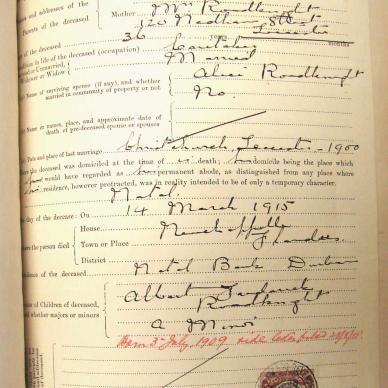 Names and addresses of the
Parents of the deceased
Mother
Mrs Roadknight
120 Needham Street
Leicester
of the deceased
36
months
Condition in life of the deceased (occupation)
Caretaker
Married or Unmarried,
Widower or Widow
Married
Name of surviving spouse (if any), and whether
married in community of property or not
Alice Roadknight
No.
Name or names, place, and approximate date of
death of pre-deceased spouse or spouses
Date and place of last marriage
Christchurch, Leicester - 1900
where the deceased was domiciled at the time of his death; domicile being the place which
would have regarded as his permanent abode, as distinguished from any place where
his residence, however protracted, was in reality intended to be only of a temporary character.
Natal.
day of the decease: On
14 March 1915
where the person died
House
Town or Place
Flanders.
District
of the deceased
Natal Bank Durban
of Children of deceased,
and whether majors or minors
Albert
Roadknight
a Minor
Born 3 July, 1909 vide letter filed